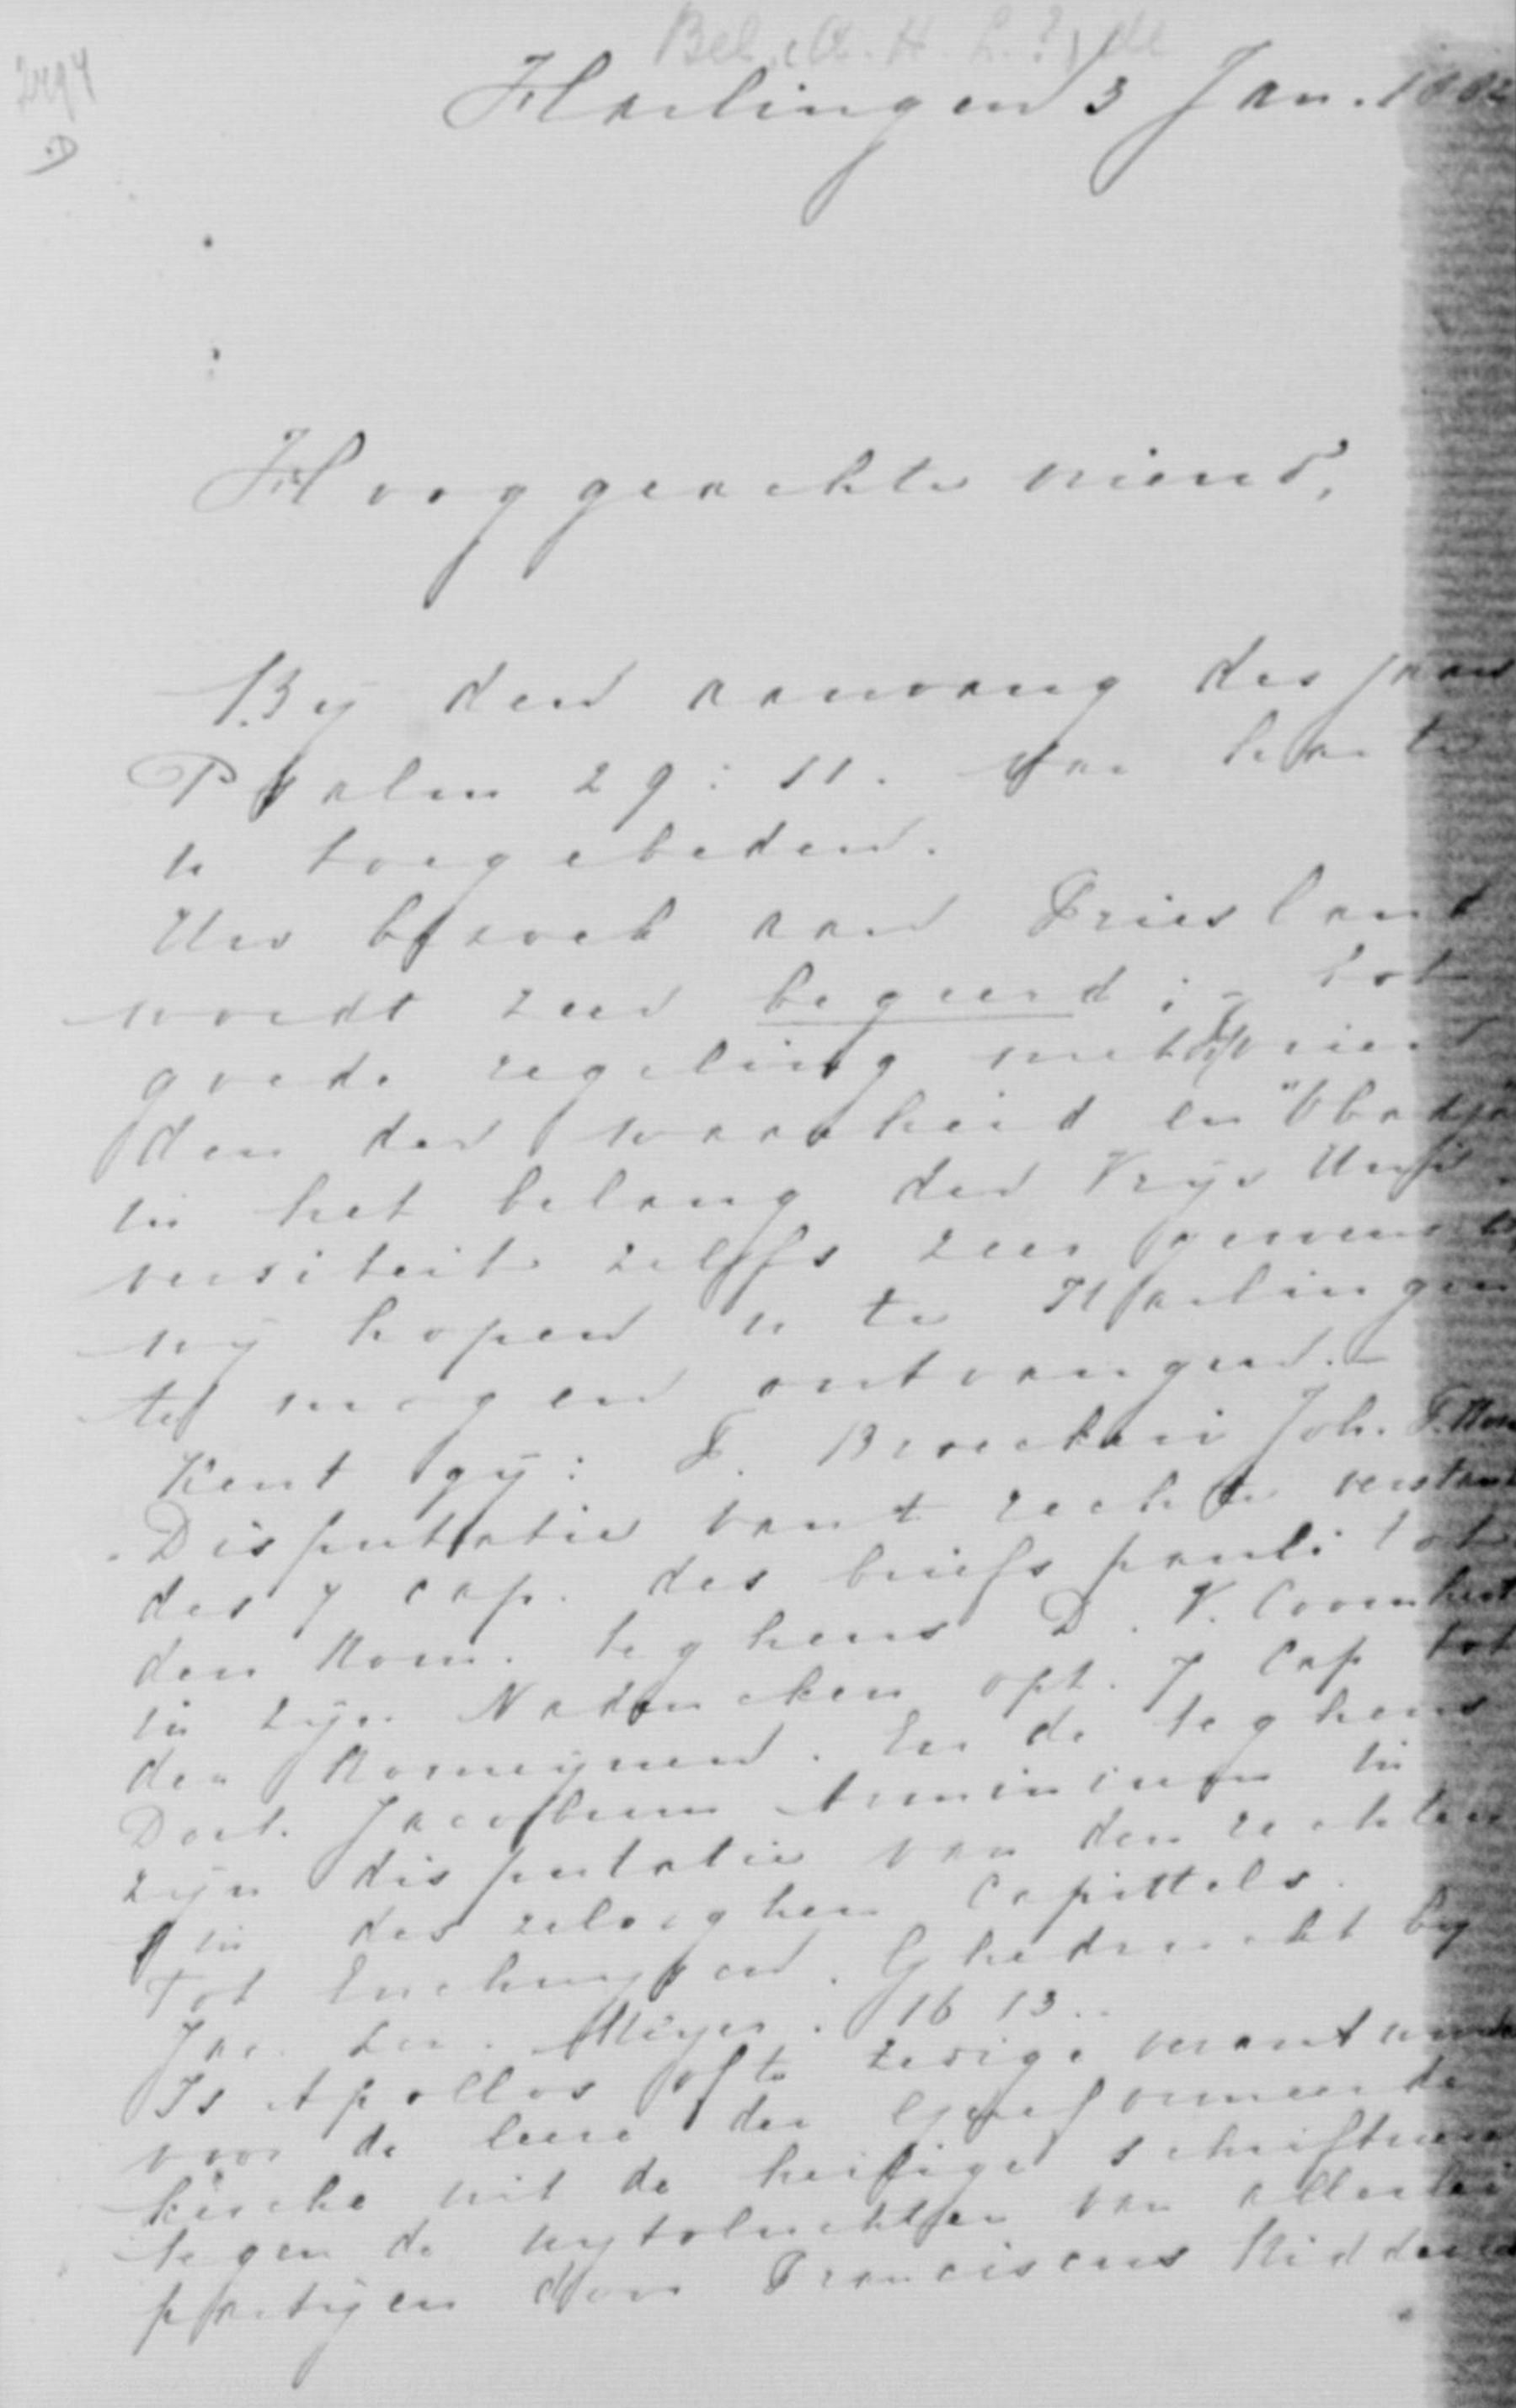 Bel, (A. H. L.?) de
2494
D
Harlingen 3 Jan. 1882
Hooggeachte vriend,
By den aanvang des jaars
Psalm 29:11. van harte
u toegebeden.
Uw bezoek aan Friesland
wordt zeer begeerd; - tot
goede regeling met de vrien
den der waarheid en "Obadja"
in het belang der Vrije Uni
versiteit zelfs zeer gewenscht,
wij hopen u te Harlingen
te mogen ontvangen. -
Kent gij: F. Broeckeri Joh. F.
Disputatie vant rechte verstand
des 7 cap. des briefs pauli tot
den Rom. teghens D. V. Coornhert
in zijn Nadencken opt. 7 Cap tot
den Romeynen. En de teghens
Doct. Jacobum Arminium in
zijn disputatie van den rechten
sin des zelvighen Capittels.
Tot Enchuysen. Ghedruckt by
Jac. Len. Meyn. 1613.
Is Apollos ofte zedige verantwoor
voor de leere der Gereformeerde
kercke uit de heilige schriftuere
tegen de uytvluchten van allerlei
partijen door Franciscus Ridderus